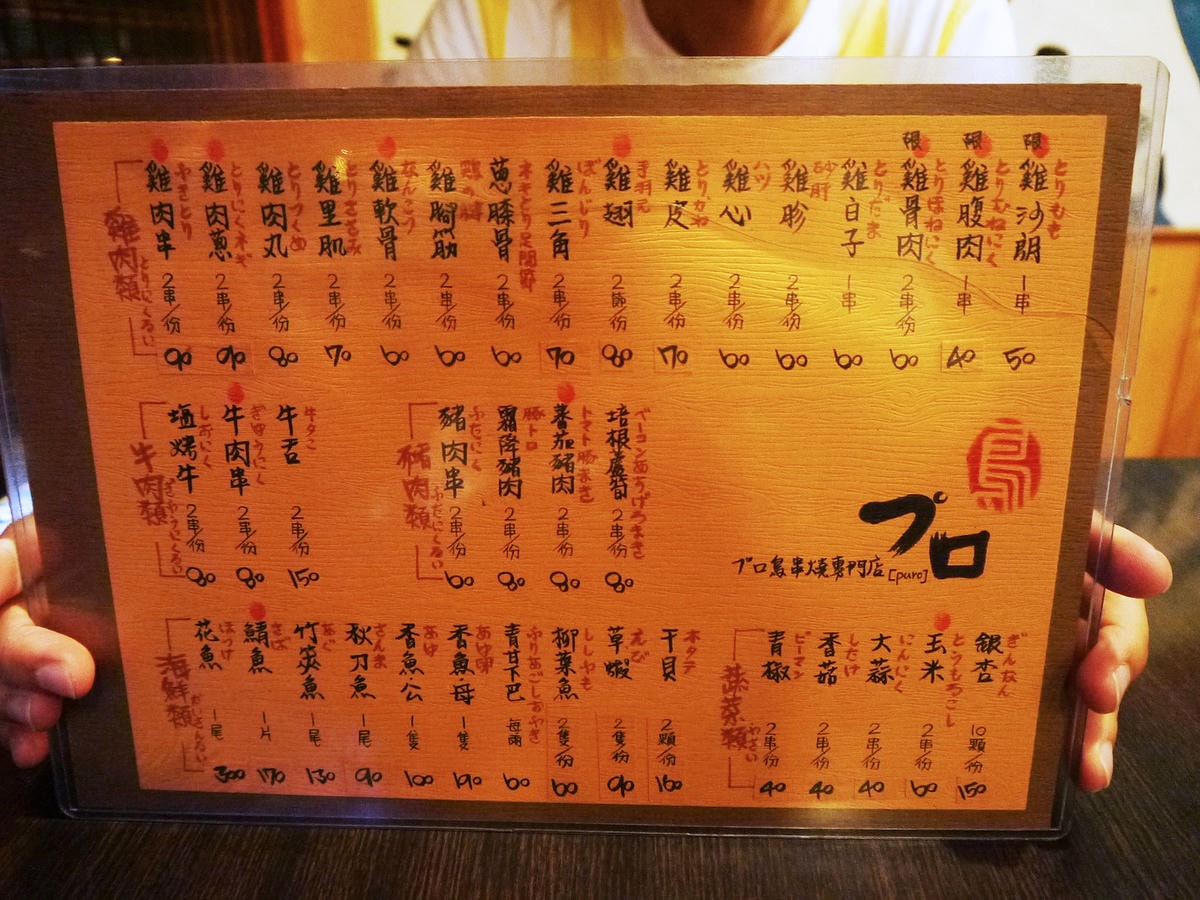 雞肉類 とりにくるい
雞肉串 やきとり 2串/份 90
雞肉蔥 とりにくネギ 2串/份 90
雞肉丸 とりつくめ 2串/份 80
雞里肌 とりささみ 2串/份 70
雞軟骨 なんこつ 2串/份 60
雞腳筋 2串/份 60
蔥膝骨 ネギとり足関節 2串/份 60
雞三角 ぼんじり 2串/份 70
雞翅 手羽元 2串/份 80
雞皮 とりかわ 2串/份 70
雞心 ハツ 2串/份 60
雞胗 砂肝 2串/份 60
雞白子 とりだま 1串 60
限 雞骨肉 とりほねにく 2串/份 60
限 雞腹肉 とりむねにく 1串 40
限 雞沙朗 とりもも 1串 50
牛肉類 ぎゅうにくるい
塩烤牛 しおにく 2串/份 80
牛肉串 ぎゅうにく 2串/份 80
牛舌 牛タン 2串/份 150
豬肉類 ぶたにくるい
豬肉串 ぶたにく 2串/份 60
霜降豬肉 豚トロ 2串/份 80
蕃茄豬肉 トマト豚まき 2串/份 80
培根蘆筍 2串/份 80
鳥
プロ
プロ鳥串燒專門店 [puro]
海鮮類 かいさんるい
花魚 ほっけ 1尾 300
鯖魚 さば 1片 170
竹筴魚 あじ 1尾 130
秋刀魚 さんま 1尾 90
香魚公 あゆ 1隻 100
香魚母 あゆ卵 1隻 190
青甘下巴 每兩 60
柳葉魚 ししゃも 2隻/份 60
草蝦 えび 2隻/份 90
干貝 ホタテ 2顆/份 160
蔬菜類 やさい
青椒 ピーマン 2串/份 40
香菇 しだけ 2串/份 40
大蒜 にんにく 2串/份 40
玉米 とうもろこし 2串/份 60
銀杏 ぎんなん 10顆/份 150